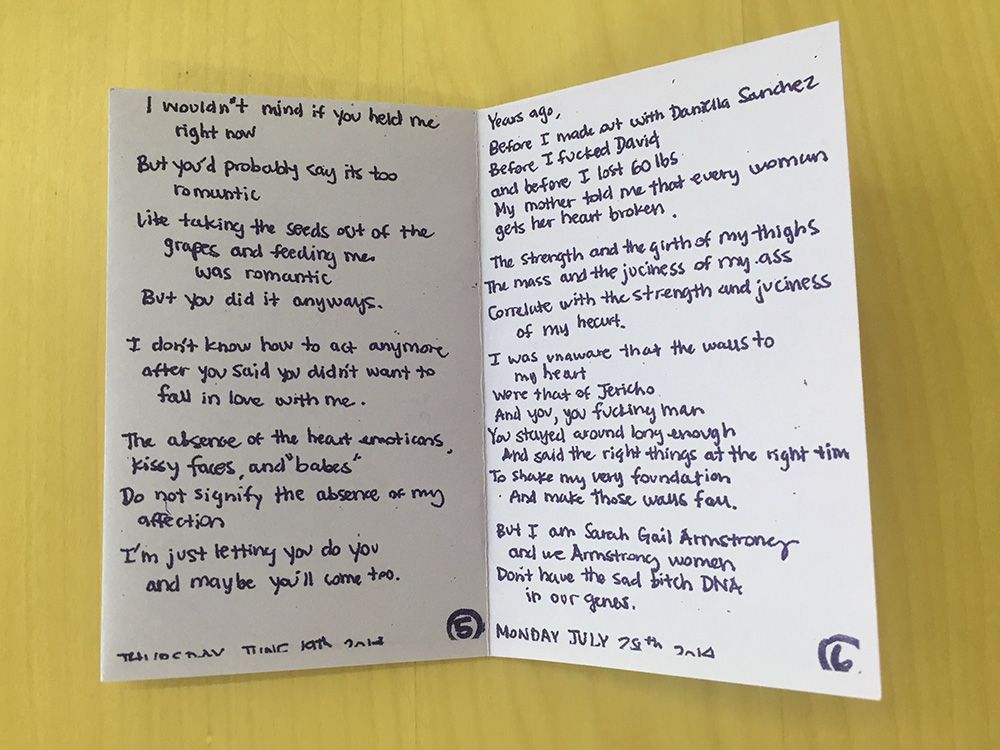 I wouldn't mind if you held me
right now
But you'd probably say its too
romantic
Like taking the seeds out of the
grapes and feeding me
was romantic
But you did it anyways.
I don't know how to act anymore
after you said you didn't want to
fall in love with me.
The absence of the heart emoticons,
kissy faces, and "babes"
Do not signify the absence of my
affection
I'm just letting you do you
and maybe you'll come too.
THURSDAY JUNE 19th 2014
5
Years ago,
Before I made out with Daniella Sanchez
Before I fucked David
and before I lost 60 lbs
My mother told me that every woman
gets her heart broken.
The strength and the girth of my thighs
The mass and the juciness of my ass
Correlate with the strength and juciness
of my heart.
I was unaware that the walls to
my heart
were that of Jericho
And you, you fucking man
You stayed around long enough
And said the right things at the right tim
To shake my very foundation
And make those walls fall.
But I am Sarah Gail Armstrong
and we Armstrong women
Don't have the sad bitch DNA
in our genes.
MONDAY JULY 28th 2014
6